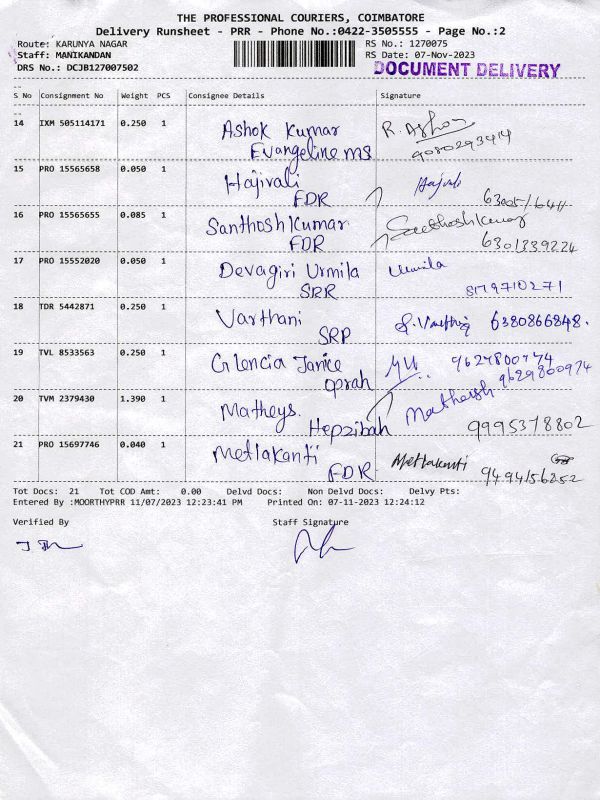 THE PROFESSIONAL COURIERS, COIMBATORE
Delivery Runsheet - PRR - Phone No.:0422-3505555 - Page No.:2
Route: KARUNYA NAGAR RS No.: 1270075
Staff: MANIKANDAN RS Date: 07-Nov-2023
DRS No.: DCJB127007502 DOCUMENT DELIVERY
S No Consignment No Weight PCS Consignee Details Signature
14 IXM 505114171 0.250 1 Ashok Kumar
Evangeline ms 9080293414
15 PRO 15565658 0.050 1 Hajivali
FDR
16 PRO 15565655 0.085 1 Santhosh Kumar Santhosh Kumar
FDR 6301339224
17 PRO 15552020 0.050 1 Devagiri Urmila Urmila
SRR 8179710271
18 TDR 5442871 0.250 1 Varthani
SRP 6380866848.
19 TVL 8533563 0.250 1 Glencia Janice
oprah 9629800974
20 TVM 2379430 1.390 1 Matheys.
Hepzibah 9995378802
21 PRO 15697746 0.040 1 Metlakanti Metlakanti
FDR 9494156252
Tot Docs: 21 Tot COD Amt: 0.00 Delvd Docs: Non Delvd Docs: Delvy Pts:
Entered By :MOORTHYPRR 11/07/2023 12:23:41 PM Printed On: 07-11-2023 12:24:12
Verified By Staff Signature